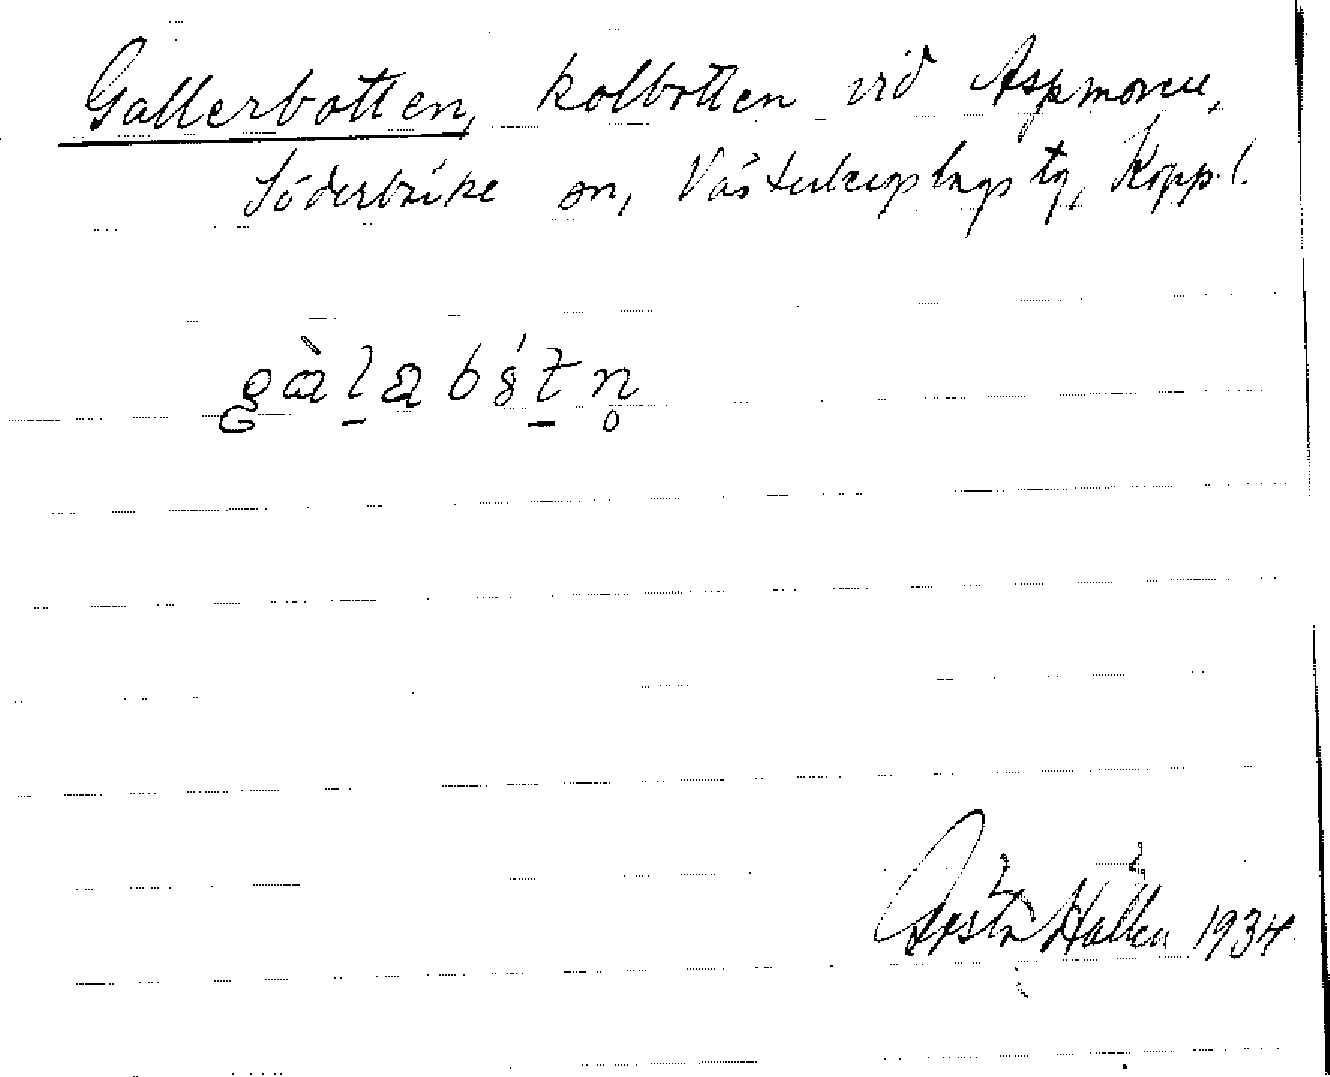 Gallerbotten, kolbotten vid Aspmoren,
Söderbärke sn, Västerbergslags tg, Kopp. l.
gàlabøtn̥
Gösta Hållen 1934